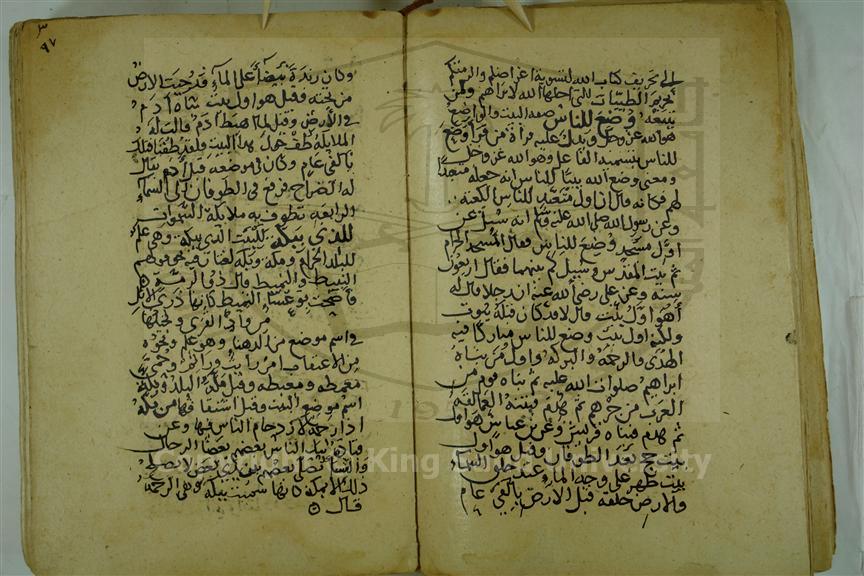 الى تحريف كتاب الله لتسوية اغراضكم والزمتكم
تحريم الطيبات التي احلها الله لابراهيم ولمن
تبعه وضع للناس صفة لبيت والواضع
هو الله عز وجل ويدل عليه قراة من قرا وضع
للناس بتسمية الفاعل وهو الله عز وجل
ومعنى وضع الله بيتا للناس انه جعله متعبدا
لهم فكانه قال ان اول متعبد للناس الكعبة
وعن رسول الله صلى الله عليه وسلم انه سيل عن
اول مسجد وضع للناس فقال المسجد الحرام
ثم بيت المقدس وسيل كم بينهما فقال اربعون
سنة وعن على رضى الله عنه ان رجلا قال له
اهو اول بيت قال لا قد كان قبله بيوت
ولكنه اول بيت وضع للناس مباركا فيه
الهدى والرحمة والبركة واول من بناه
ابراهيم صلوات الله عليه ثم بناه قوم من
العرب من جرهم ثم هدم فبنته العمالقة
ثم هدم فبناه قريش وعن ابن عباس هو اول
بيت حج بعد الطوفان وقيل هو اول
بيت ظهر على وجه الماء عند خلق السماء
والارض خلقه قبل الارض بالفي عام
٩٧
وكان زبدة بيضاء على الماء فدحيت الارض
من تحته وقيل هو اول بيت بناه ادم
في الارض وقيل لما هبط ادم قالت له
الملايكة طف حول هذا البيت ولقد طفنا قبلك
بالفي عام وكان في موضعه قبل ادم بيت يقال
له الضراح فرفع في الطوفان الى السماء
الرابعة تطوف به ملايكة السموات
للذي ببكة للبيت الذي ببكة وهى علم
للبلد الحرام ومكة وبكة لغتان فيه نحو قولهم
النبيط والنميط
في اسم موضع من الدهنا ونحوه
من الاعتقاب امر راتب وراتم وحمى
مغمطة ومغبطة وقيل مكة البلد وبكة
اسم موضع البيت وقيل اشتقاقها من بكه
اذا زحمه لازدحام الناس فيها وعن
قتادة يبك الناس بعضهم بعضا الرجال
والنساء يصلى بعضهم بين يدى بعض لا يصلح
ذلك الا بمكة كانها سميت ببكة وهى الزحمة
قال
Copyright © King Saud University